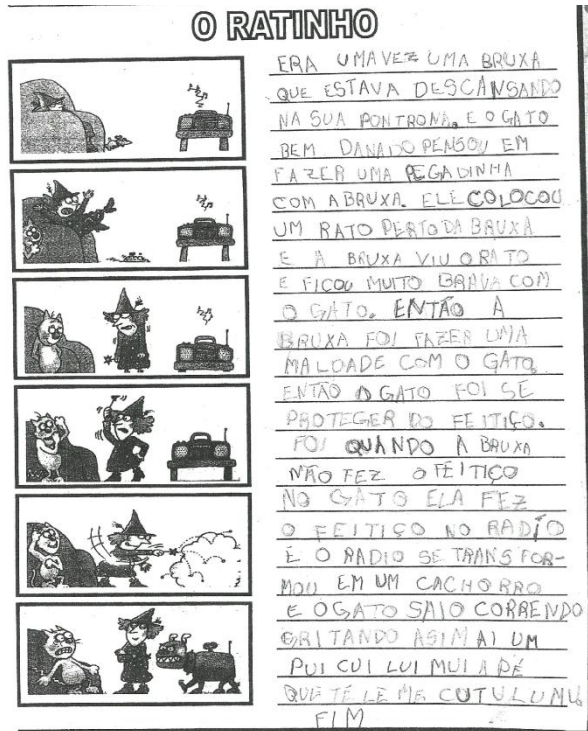 O RATINHO
ERA UMA VEZ UMA BRUXA
QUE ESTAVA DESCANSANDO
NA SUA PONTRONA. E O GATO
BEM DANADO PENSOU EM
FAZER UMA PEGADINHA
COM A BRUXA. ELE COLOCOU
UM RATO PERTO DA BRUXA
E A BRUXA VIU O RATO
E FICOU MUITO BRAVA COM
O GATO. ENTÃO A
BRUXA FOI FAZER UMA
MALDADE COM O GATO
ENTÃO O GATO FOI SE
PROTEGER DO FEITIÇO.
FOI QUANDO A BRUXA
NÃO FEZ O FEITIÇO
NO GATO ELA FEZ
O FEITIÇO NO RADÍO
E O RADIO SE TRANSFOR-
MOU EM UM CACHORRO
E O GATO SAIO CORRENDO
GRITANDO ASIM AI UM
PUI CUI LUI MUI A PÉ
QUE TÉ LE ME CUTULUMU
FIM